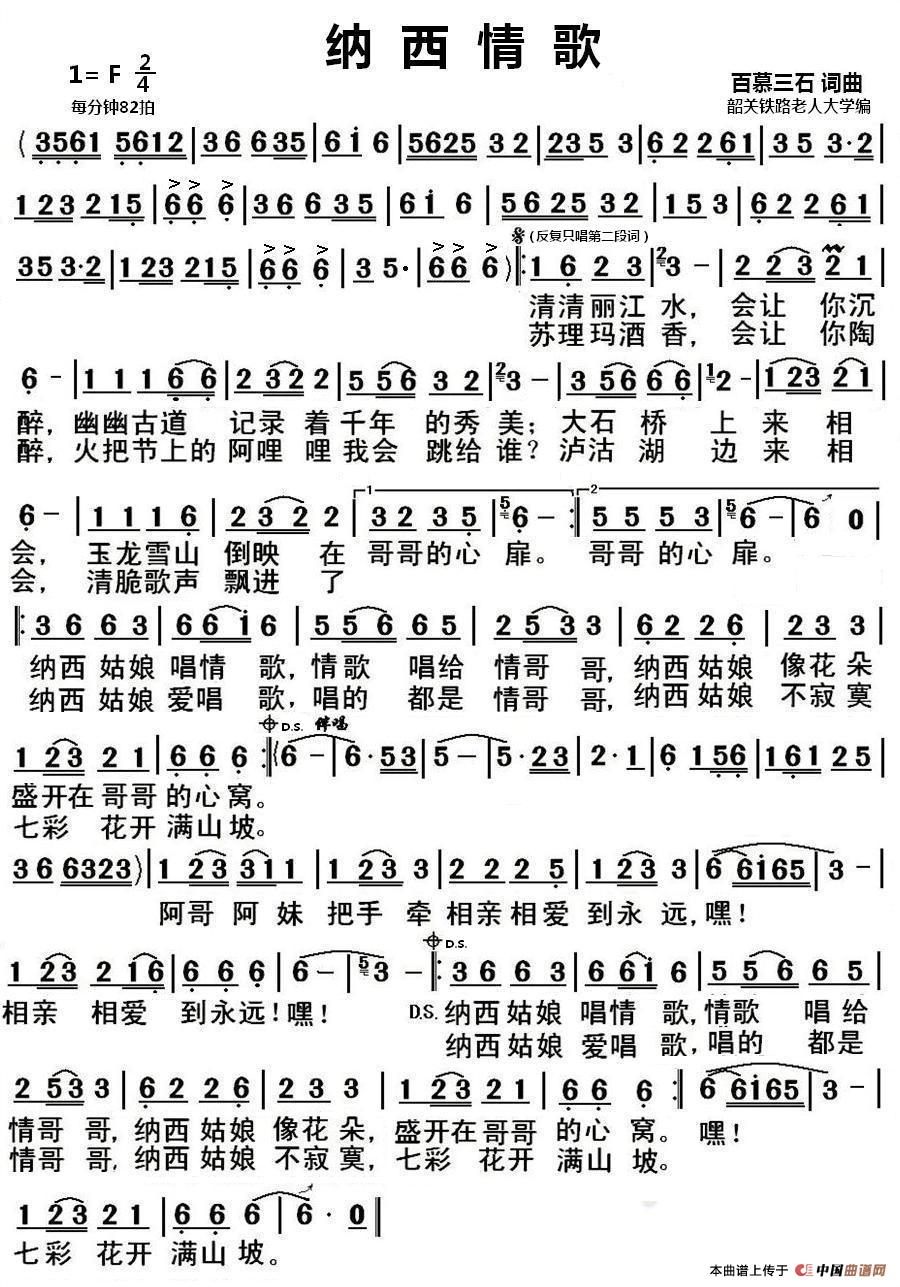 纳西情歌
1=F 2/4
百慕三石 词曲
每分钟82拍
韶关铁路老人大学编
(3561 5612|36 635|6i 6|5625 32|235 3|62 261|35 3·2|
123 215|66 6|36 635|6i 6|5625 32|15 3|62 261|
35 3·2|123 215|66 6|3 5·|66 6)
(反复只唱第二段词)
‖:16 23|3 -|2 23 21|
清清丽江水,会让 你沉
苏理玛酒香,会让 你陶
6 -|11 166|2 32 2|5 56 32|3 -|3 56 66|2 -|123 21|
醉,幽幽古道 记录 着千年 的秀美;大石 桥 上来 相
醉,火把节上的阿哩 哩我会 跳给谁?泸沽 湖 边来 相
6 -|11 16|2 32 2|32 35|6 -:‖55 53|6 -|6 0|
会,玉龙雪山 倒映 在 哥哥的心 扉。 哥哥的心 扉。
会,清脆歌声 飘进 了
‖:36 63|66i 6|556 65|253 3|62 26|23 3|
纳西姑娘 唱情 歌,情歌 唱给 情哥 哥,纳西姑娘 像花朵
纳西姑娘 爱唱 歌,唱的 都是 情哥 哥,纳西姑娘 不寂寞
D.S. 伴唱
123 21|66 6:‖(6 -|6·53|5 -|5·23|2·1|6 156|161 25|
盛开在哥哥的心窝。
七彩 花开满山坡。
36 6323)|123 311|123 3|22 25|123 3|6 6i65|3 -|
阿哥 阿妹 把手 牵 相亲相爱 到永 远,嘿!
D.S.
123 216|66 6|6 -|3 -‖:36 63|66i 6|556 65|
相亲 相爱 到永远!嘿! D.S.纳西姑娘 唱情 歌,情歌 唱给
纳西姑娘 爱唱 歌,唱的 都是
253 3|62 26|23 3|123 21|66 6:‖6 6i65|3 -|
情哥 哥,纳西姑娘 像花 朵,盛开在哥哥 的心 窝。嘿!
情哥 哥,纳西姑娘 不寂 寞,七彩 花开 满山 坡。
123 21|66 6|6·0‖
七彩 花开 满山坡。
本曲谱上传于 中国曲谱网